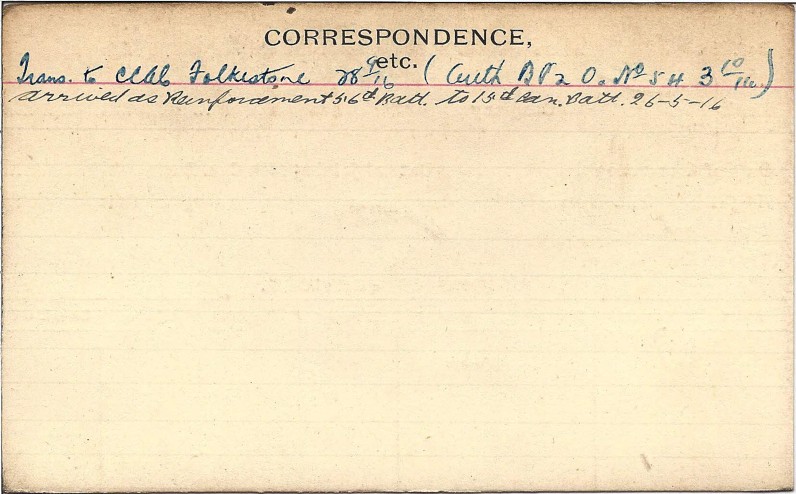 CORRESPONDENCE,
etc.
Trans. to CCAC Folkestone 28 9/16 (Auth B P 2 O. No 54 3 10/16)
arrived as Reinforcement 56th Batt. to 15th Can. Batt. 26-5-16